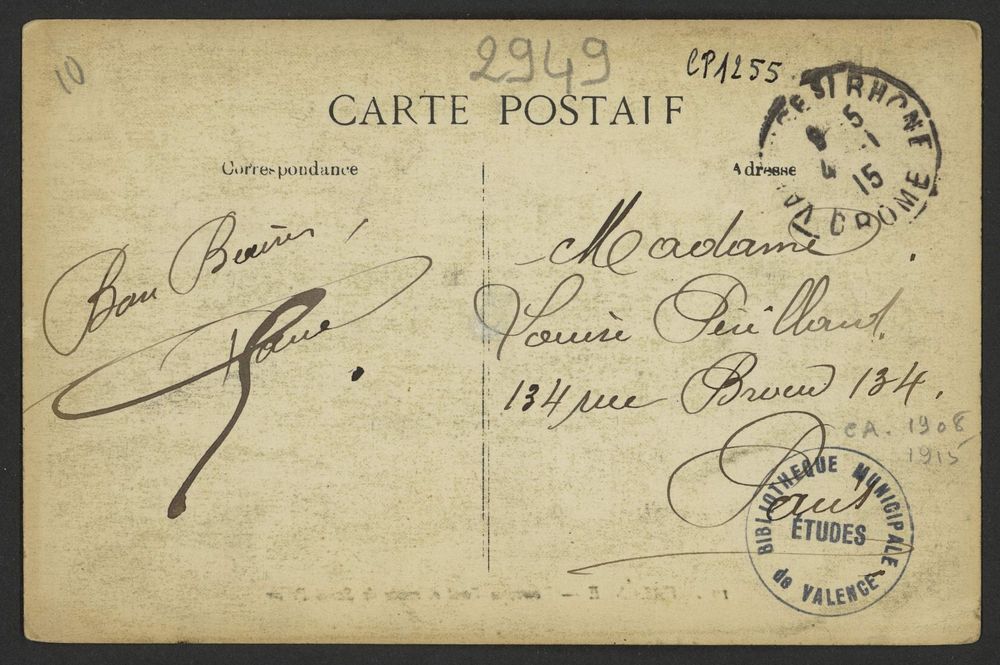 10
2949
CP1255
CARTE POSTALE
Correspondance
Adresse
RHONE
5 - 1
15
DROME
Bon Baiser
Madame
Louise
134 rue Broca 134.
Paris
CA. 1908
1915
BIBLIOTHEQUE MUNICIPALE
ÉTUDES
de VALENCE